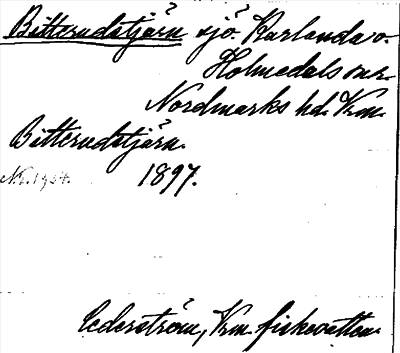 Bitterudstjärn sjö. Karlanda o.
Holmedals snr.
Nordmarks hd. Vrm.
Bitterudstjärn.
1897.
Cederström, Vrm. fiskevatten